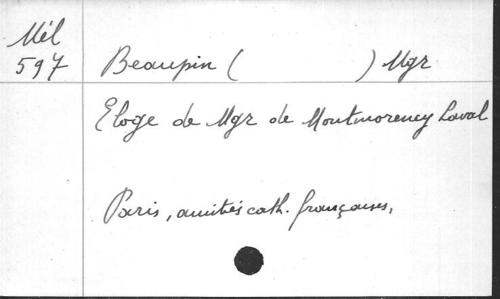 Mél
597
Beaupin ( ) Mgr
Eloge de Mgr de Montmorency Laval
Paris, amitiés cath. françaises,